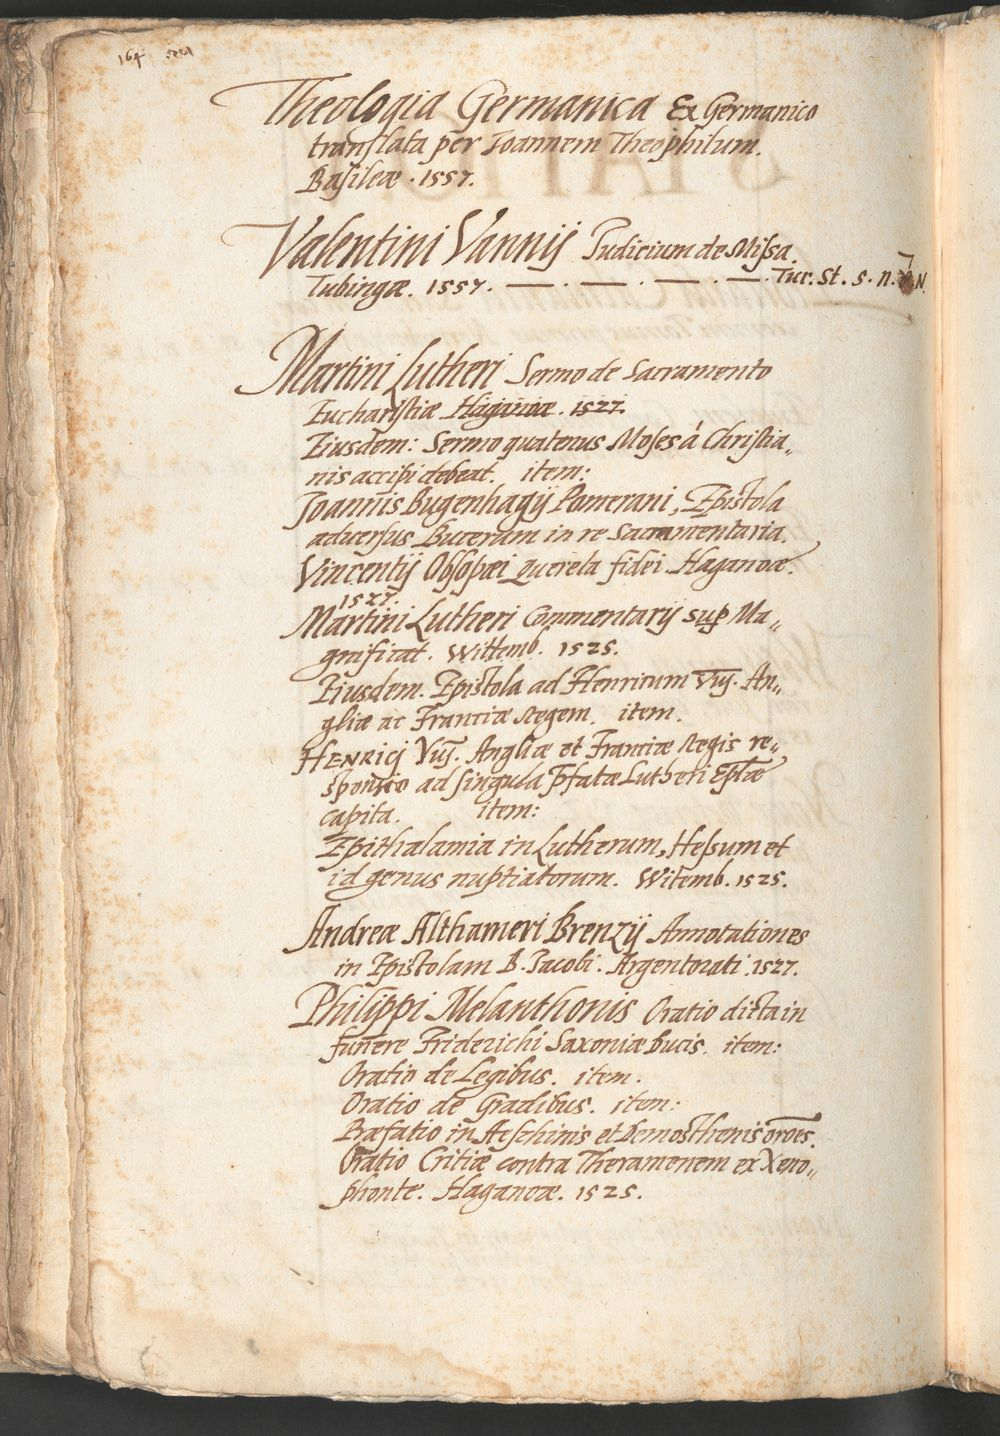 164
Theologia Germanica Ex Germanico
translata per Joannem Theophilum.
Basileæ . 1557.
Valentini Vannij Judicium de Missa.
Tubingæ. 1557. — . — . — . — . Tur. St. s. n.
Martini Lutheri Sermo de Sacramento
Eucharistiæ Haganoæ. 1527.
Eiusdem: Sermo quatenus Moses á Christia„
nis accipi debeat. item:
Joannis Bugenhagij Pomerani, Epistola
adversus Bucerum in re Sacramentaria.
Vincentij Obsopæi Querela fidei. Haganoæ.
1527.
Martini Lutheri Commentarij sup Ma„
gnificat. Wittemb. 1525.
Eiusdem. Epistola ad Henricum Viij. An„
gliæ ac Franciæ Regem. item.
HENRICI Viij. Angliæ et Franciæ Regis re„
sponsio ad singula p̄fatæ Lutheri Ep̄læ
capita. item:
Epithalamia in Lutherum, Hessum et
id genus nuptiatorum. Witemb. 1525.
Andreæ Althameri Brenzij Annotationes
in Epistolam B. Jacobi. Argentorati. 1527.
Philippi Melanthonis Oratio dicta in
funere Friderichi Saxoniæ Ducis. item:
Oratio de Legibus. item.
Oratio de Gradibus. item:
Præfatio in Aeschinis et Demosthenis orōes.
Oratio Critiæ contra Theramenem ex Xeno„
phonte. Haganoæ. 1525.